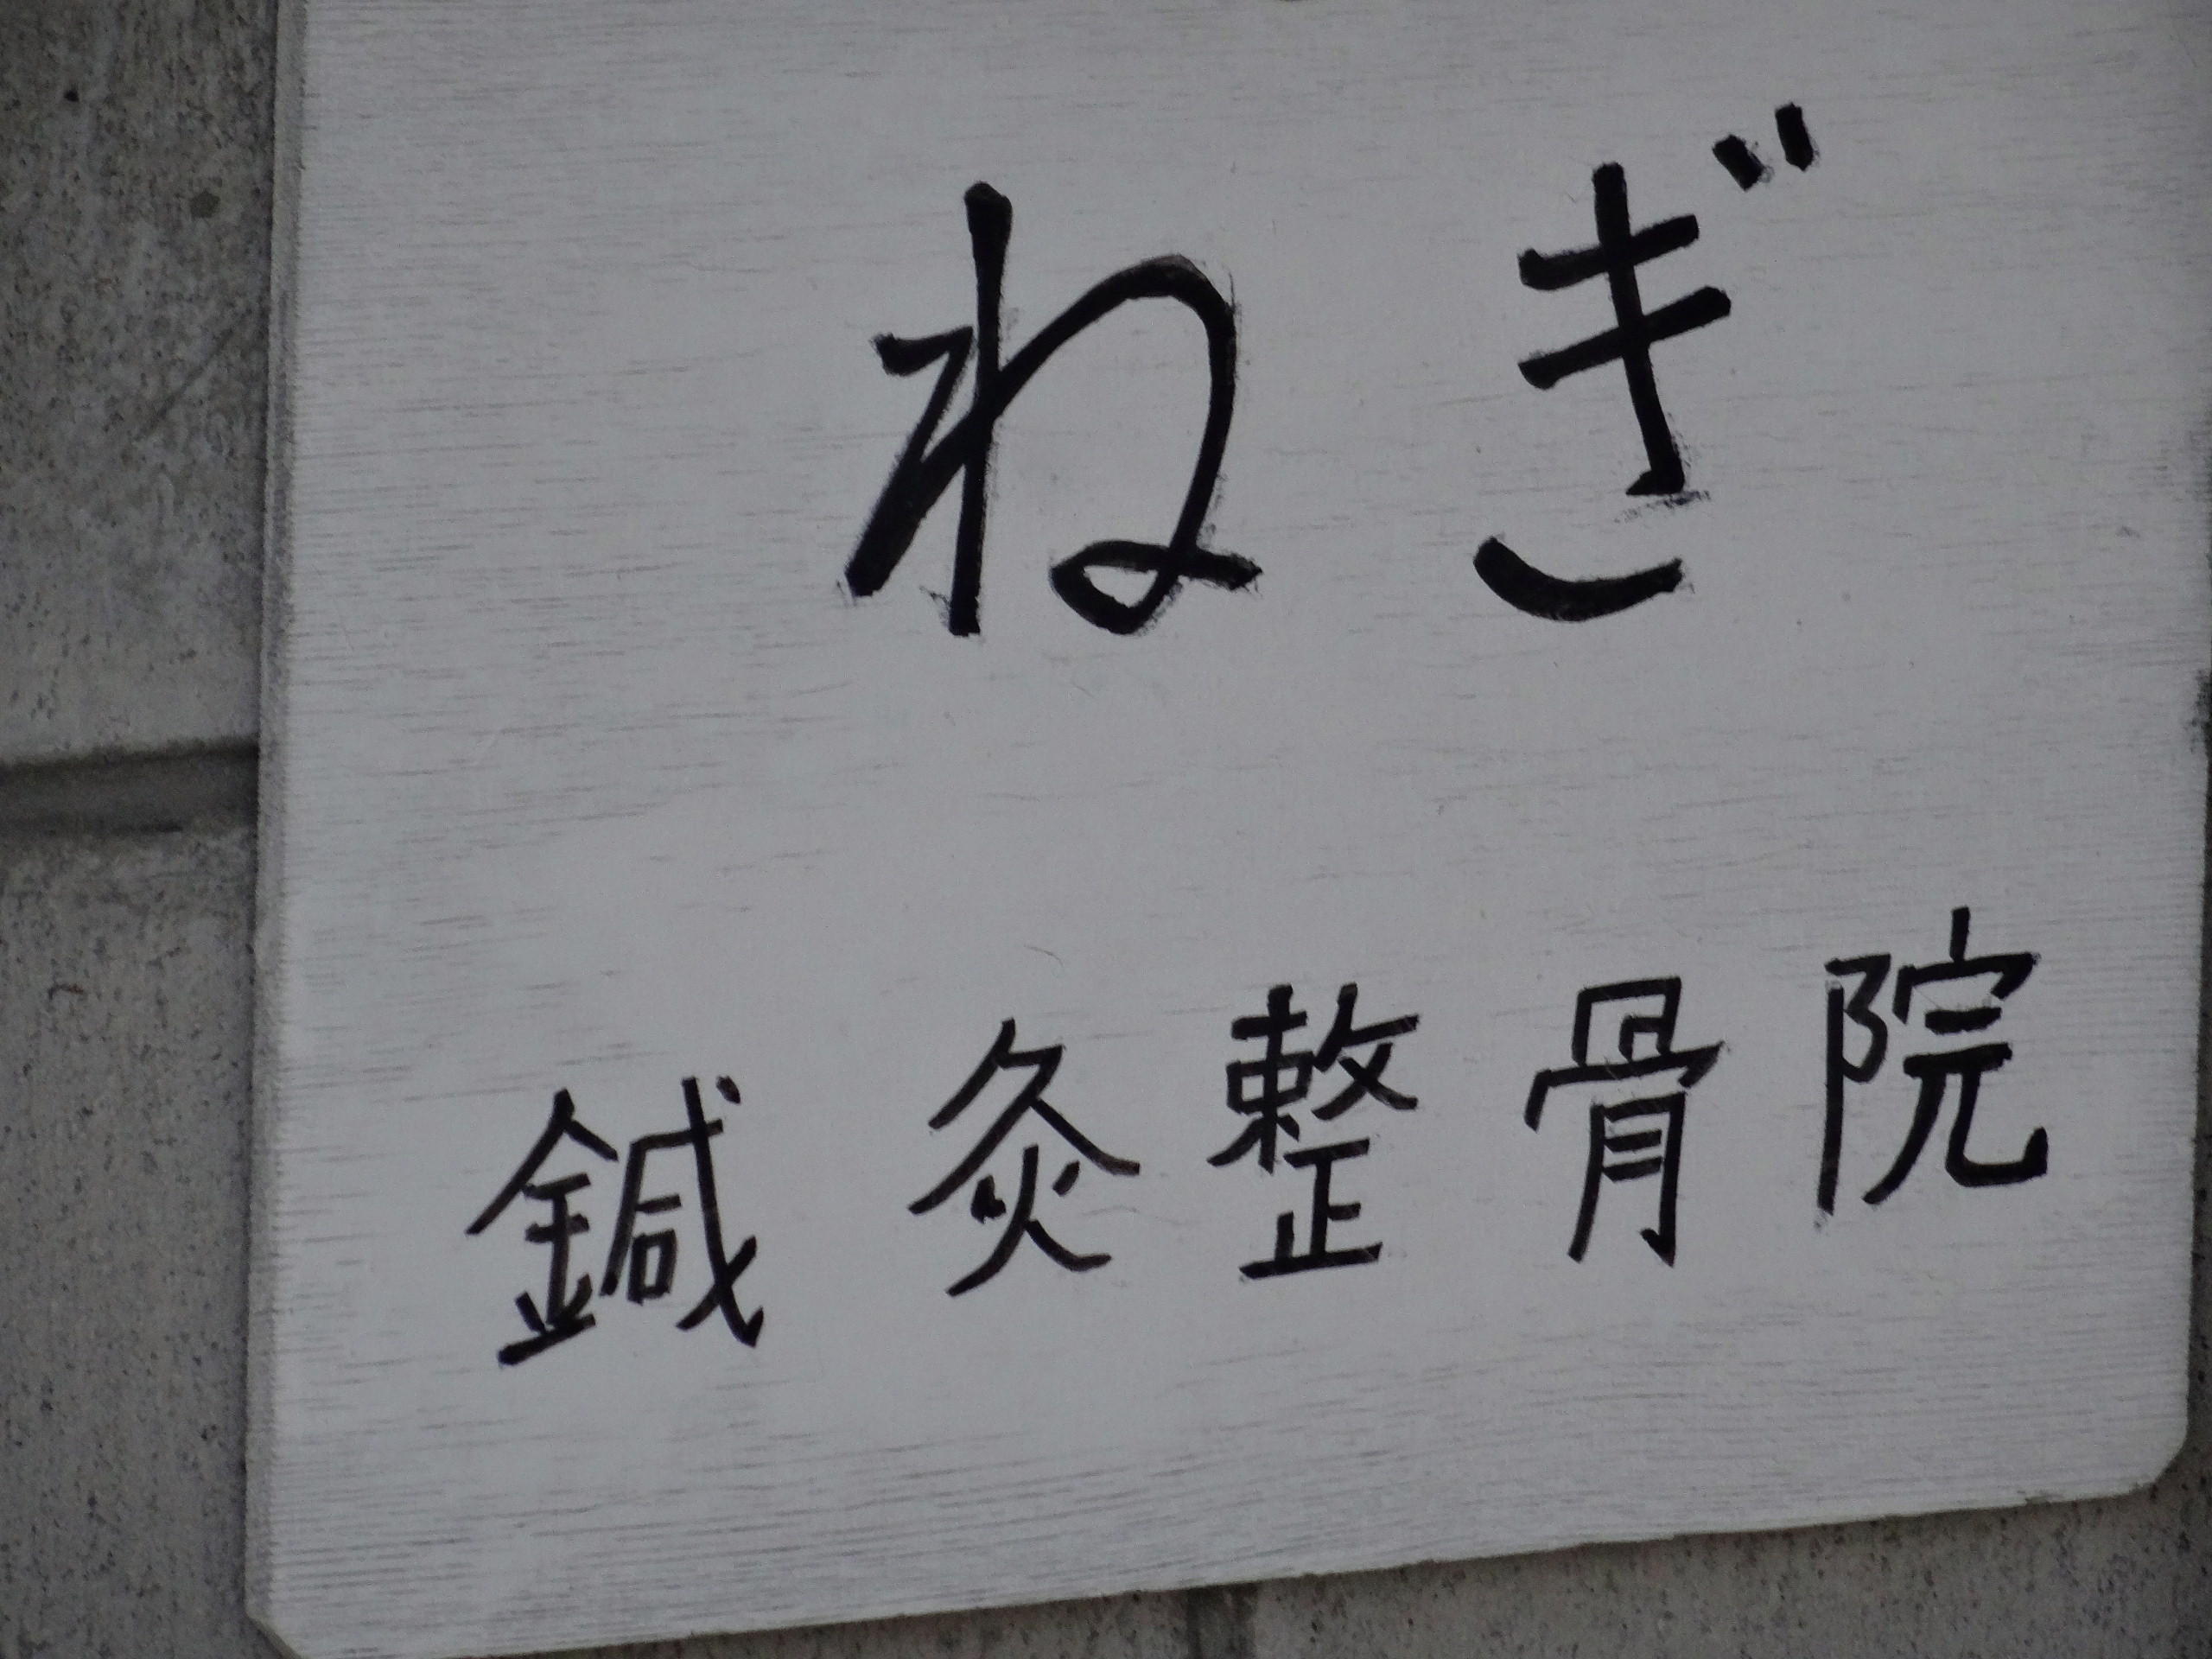 ねぎ
鍼灸整骨院